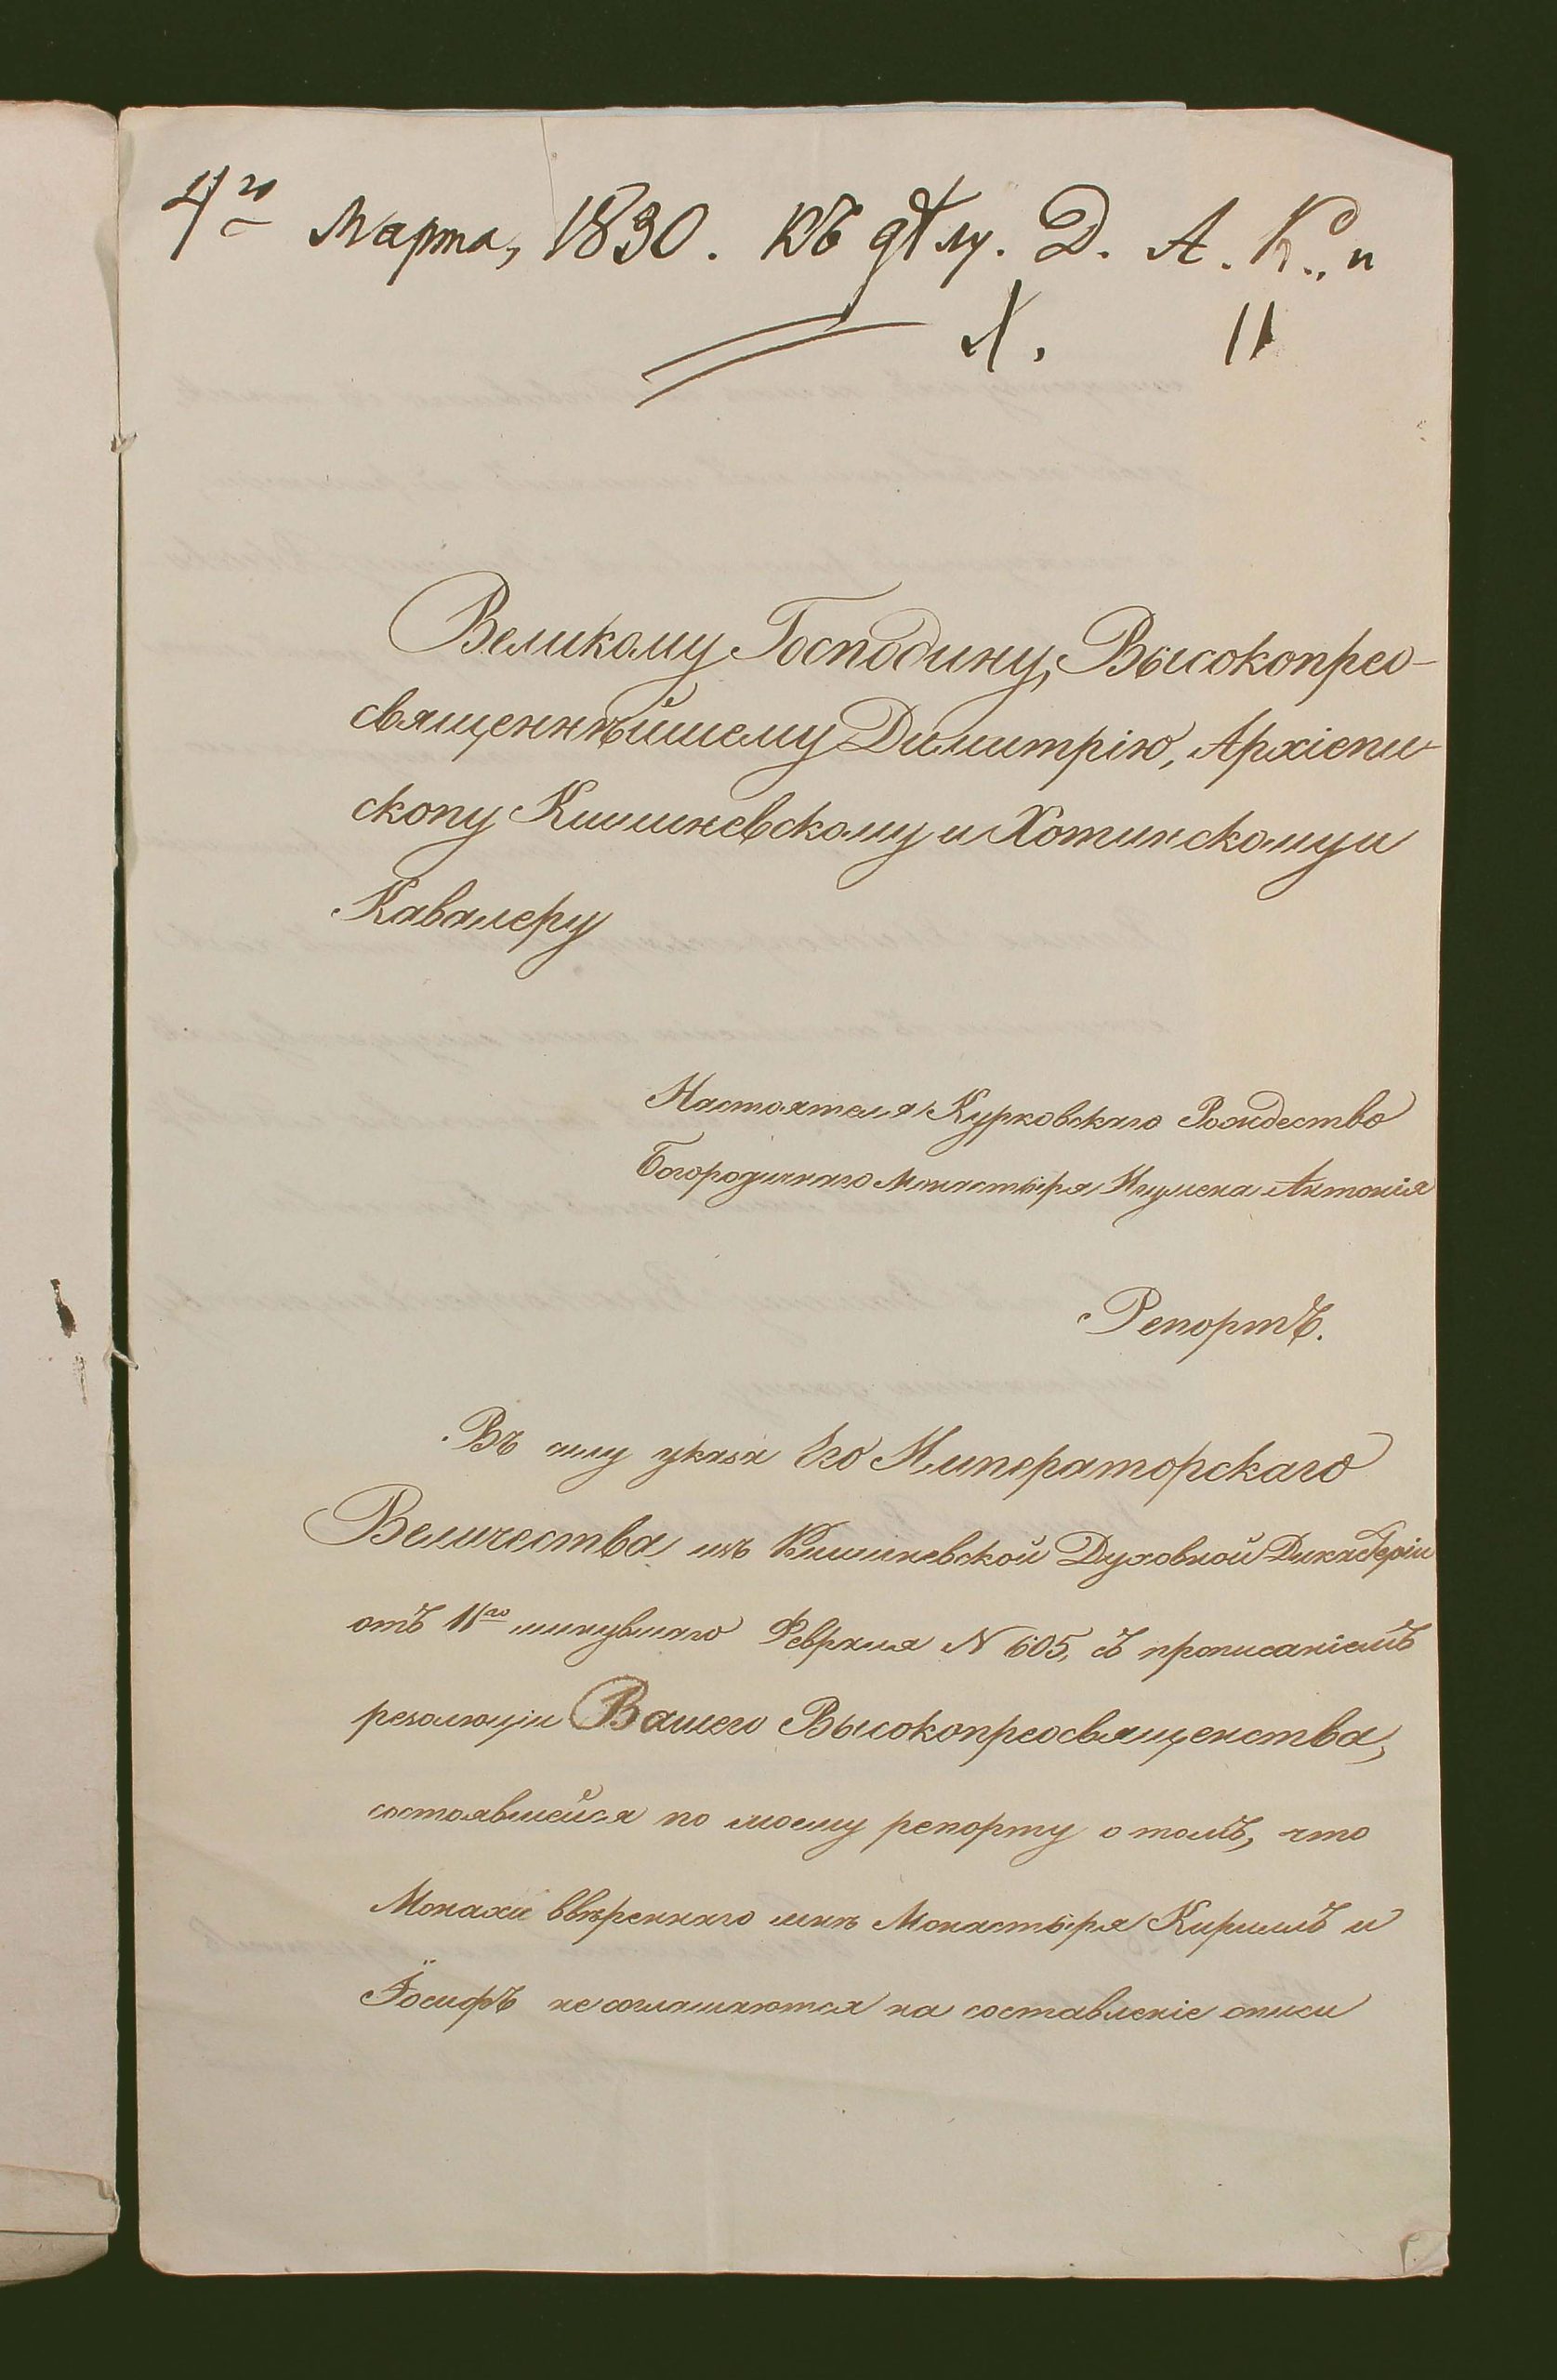 4го Марта, 1830. Къ дѣлу. Д. А. К., и
Х. 11
Великому Господину, Высокопрео-
священнѣйшему Димитрію, Архіепи-
скопу Кишиневскому и Хотинскому и
Кавалеру
Настоятеля Курковскаго Рождество
Богородичнаго Монастыря Игумена Антонія
Репортъ.
Въ силу указа Его Императорскаго
Величества изъ Кишиневской Духовной Дикастеріи
отъ 11го минувшаго Февраля N 605, съ прописаніемъ
резолюціи Вашего Высокопреосвященства,
состоявшейся по моему репорту о томъ, что
Монахи ввѣреннаго мнѣ Монастыря Кириллъ и
Іосифъ не соглашаются на составленіе описи